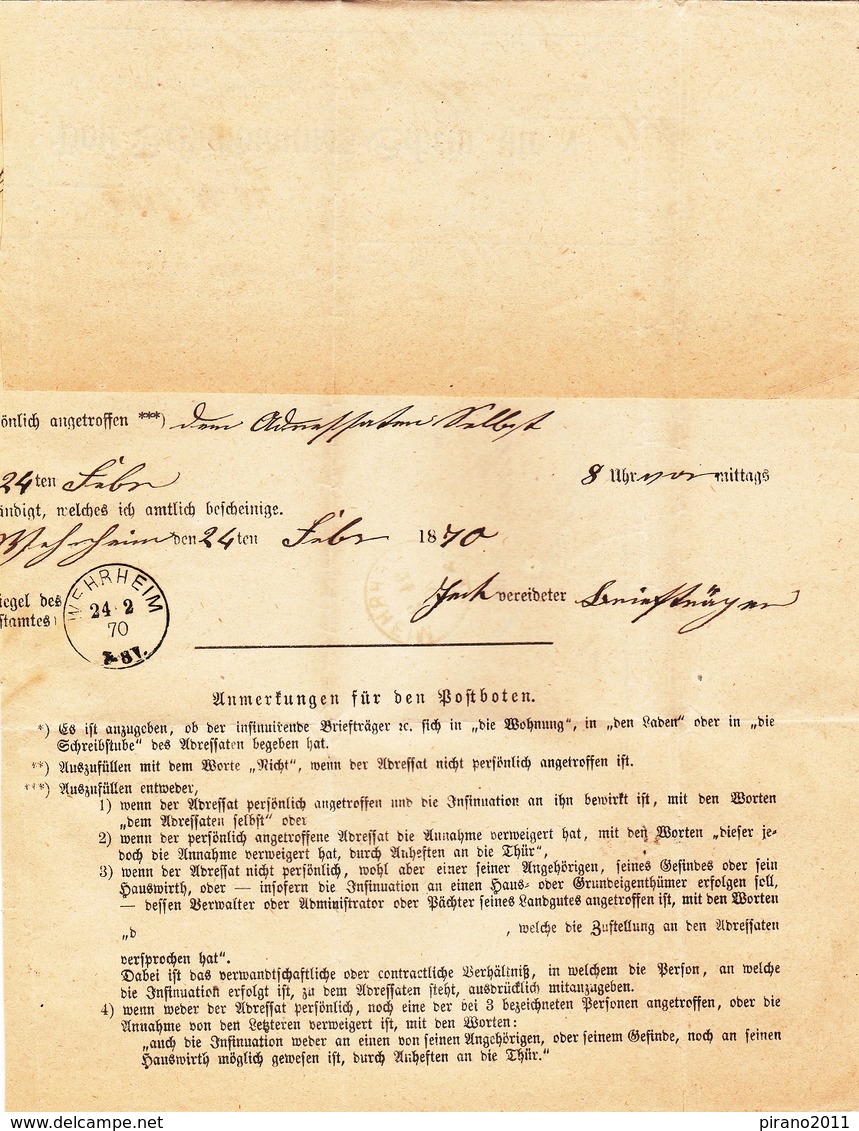 önlich angetroffen ***) dem Adressaten Selbst
24ten Febr 8 Uhr vor mittags
ändigt, welches ich amtlich bescheinige.
Wehrheim den 24ten Febr 1870
iegel des
stamtes)
WEHRHEIM
24 2
70
vereideter Briefträger
Anmerkungen für den Postboten.
*) Es ist anzugeben, ob der insinuirende Briefträger ꝛc. sich in „die Wohnung“, in „den Laden“ oder in „die
Schreibstube“ des Adressaten begeben hat.
**) Auszufüllen mit dem Worte „Nicht“, wenn der Adressat nicht persönlich angetroffen ist.
***) Auszufüllen entweder,
1) wenn der Adressat persönlich angetroffen und die Insinuation an ihn bewirkt ist, mit den Worten
„dem Adressaten selbst“ oder
2) wenn der persönlich angetroffene Adressat die Annahme verweigert hat, mit den Worten „dieser je-
doch die Annahme verweigert hat, durch Anheften an die Thür“,
3) wenn der Adressat nicht persönlich, wohl aber einer seiner Angehörigen, seines Gesindes oder sein
Hauswirth, oder — insofern die Insinuation an einen Haus- oder Grundeigenthümer erfolgen soll,
— dessen Verwalter oder Administrator oder Pächter seines Landgutes angetroffen ist, mit den Worten
„d , welche die Zustellung an den Adressaten
versprochen hat“.
Dabei ist das verwandtschaftliche oder contractliche Verhältniß, in welchem die Person, an welche
die Insinuation erfolgt ist, zu dem Adressaten steht, ausdrücklich mitanzugeben.
4) wenn weder der Adressat persönlich, noch eine der bei 3 bezeichneten Personen angetroffen, oder die
Annahme von den Letzteren verweigert ist, mit den Worten:
„auch die Insinuation weder an einen von seinen Angehörigen, oder seinem Gesinde, noch an seinen
Hauswirth möglich gewesen ist, durch Anheften an die Thür.“
www.delcampe.net pirano2011